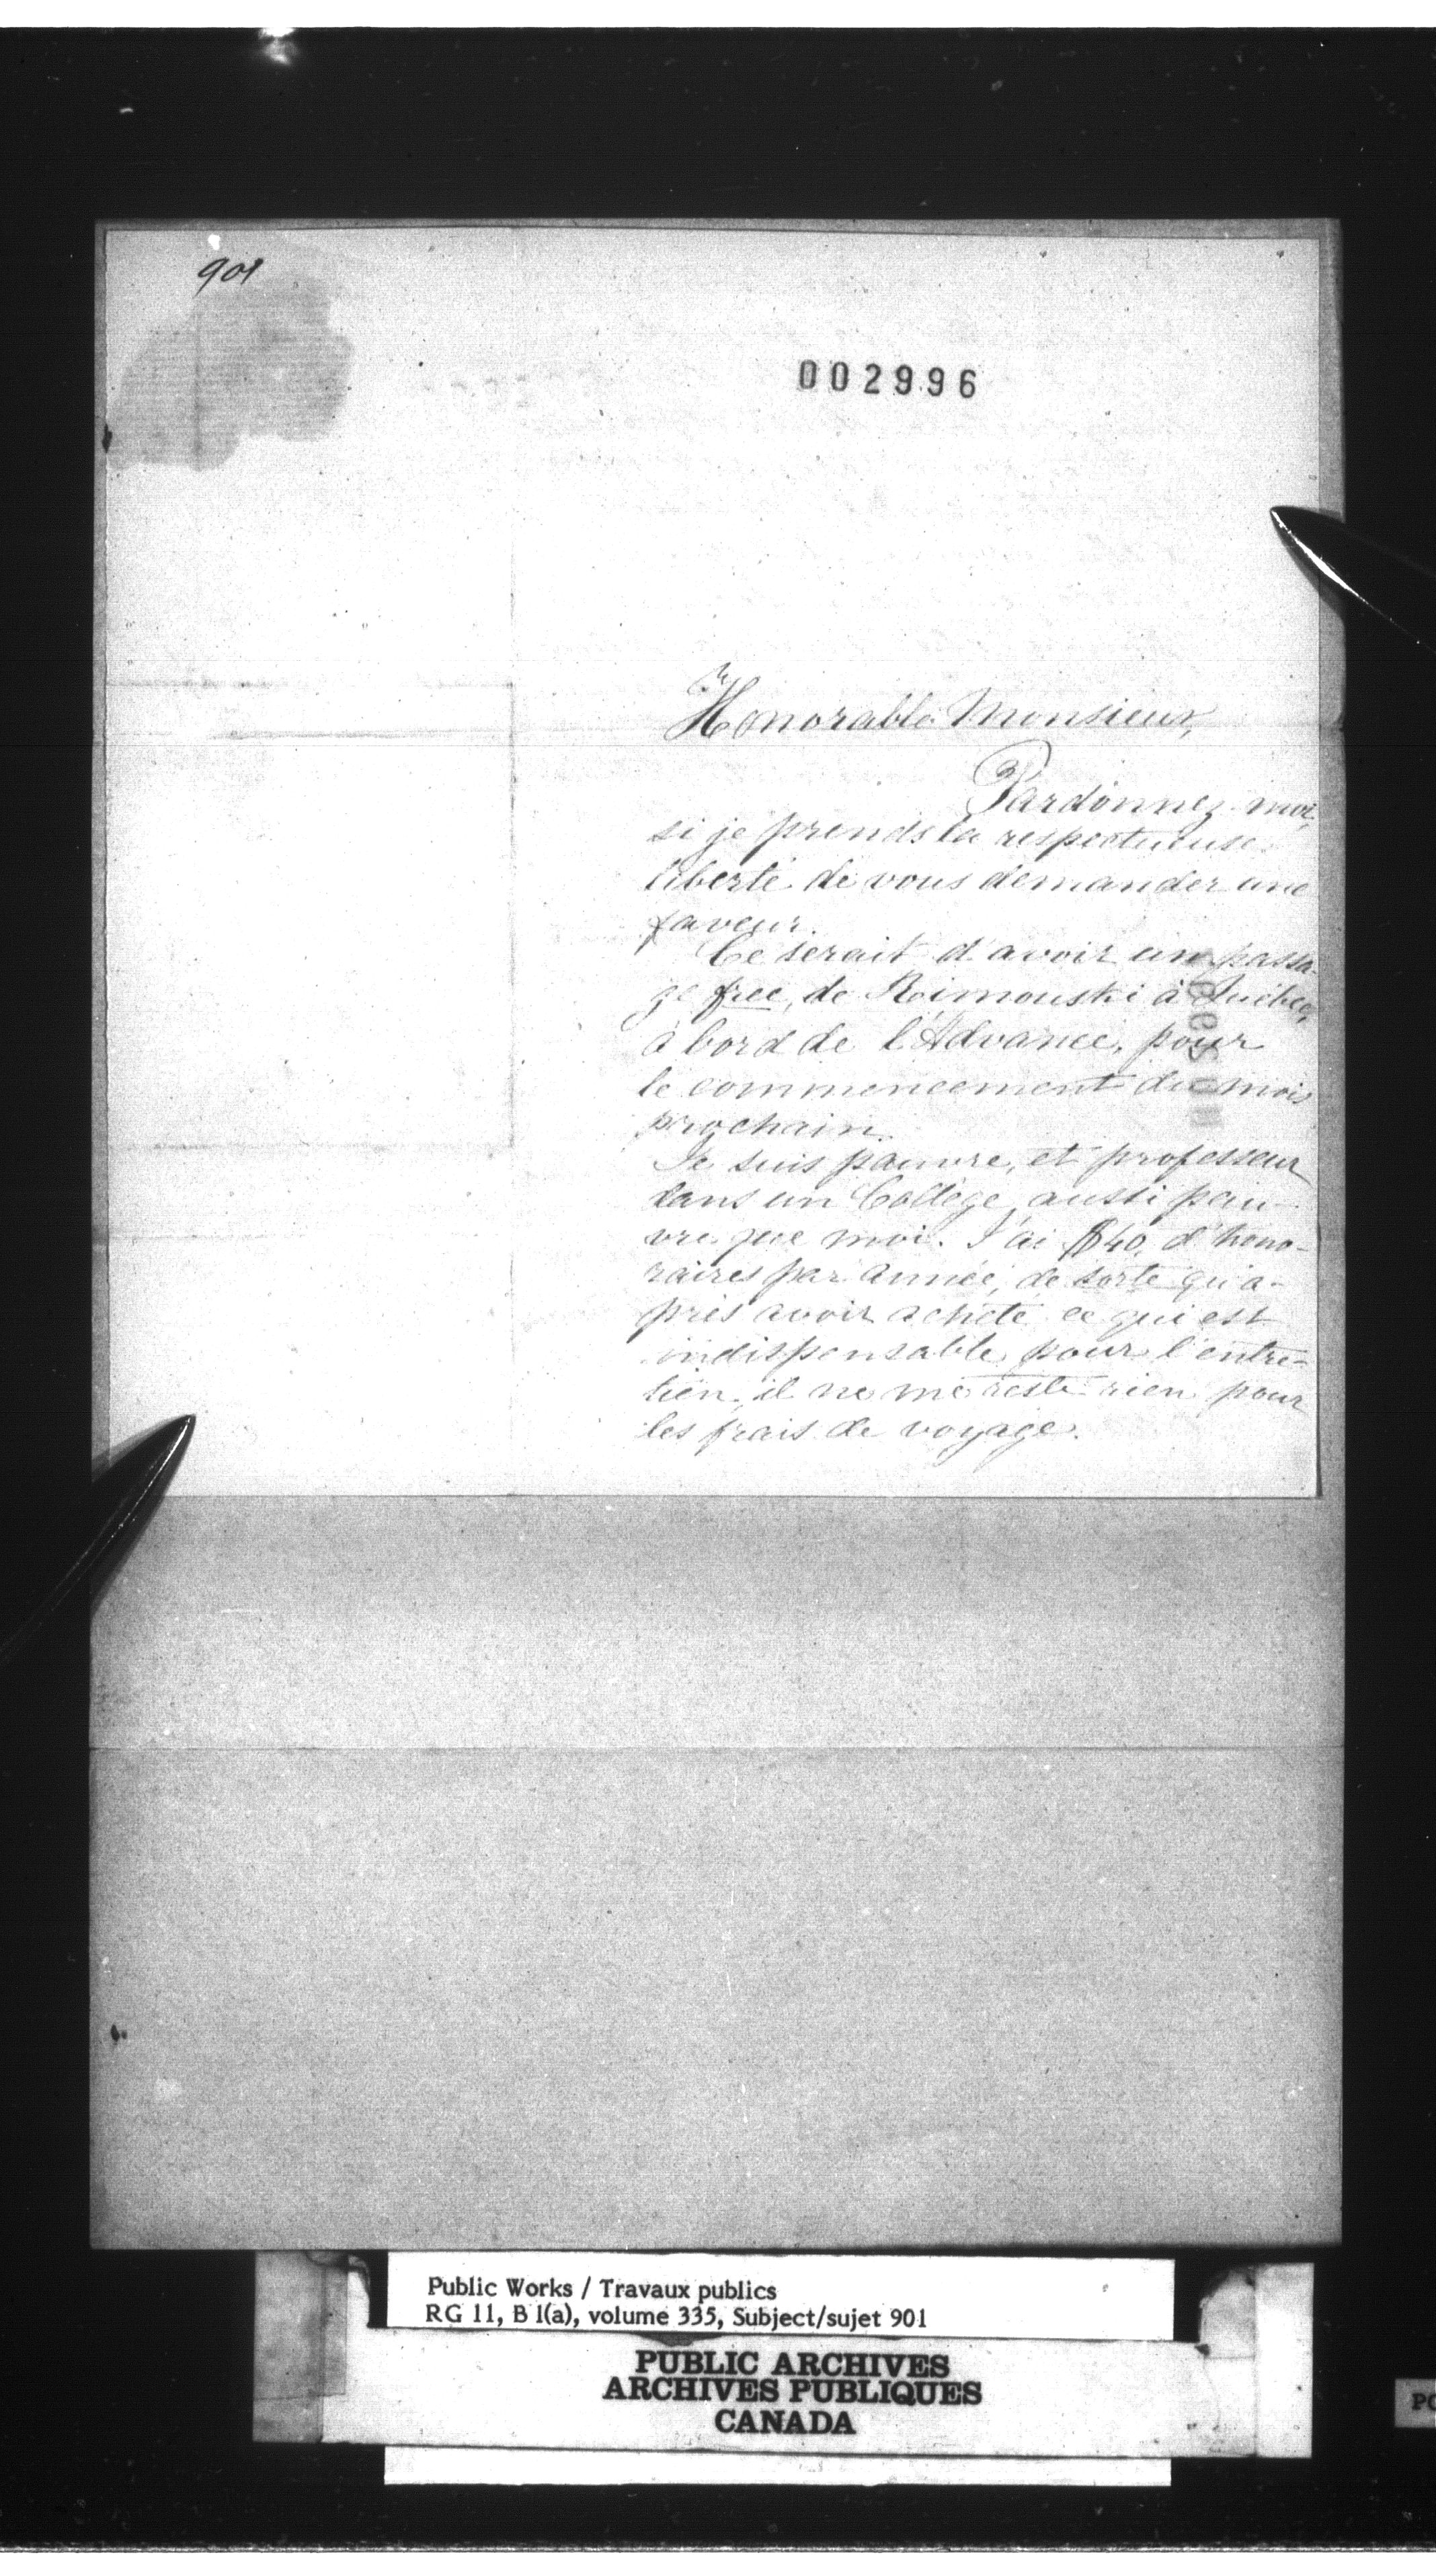 901
002996
Honorable Monsieur,
Pardonnez-moi,
si je prends la respectueuse
liberté de vous demander une
faveur.
Ce serait d'avoir un passa-
ge free, de Rimouski à Québec,
à bord de l'Advance, pour
le commencement du mois
prochain.
Je suis pauvre, et professeur
dans un Collège aussi pau-
vre que moi. J'ai $40, d'hono-
raires par année, de sorte qu'a-
près avoir acheté ce qui est
indispensable pour l'entre-
tien, il ne me reste rien pour
les frais de voyage.
Public Works / Travaux publics
RG 11, B 1(a), volume 335, Subject/sujet 901
PUBLIC ARCHIVES
ARCHIVES PUBLIQUES
CANADA